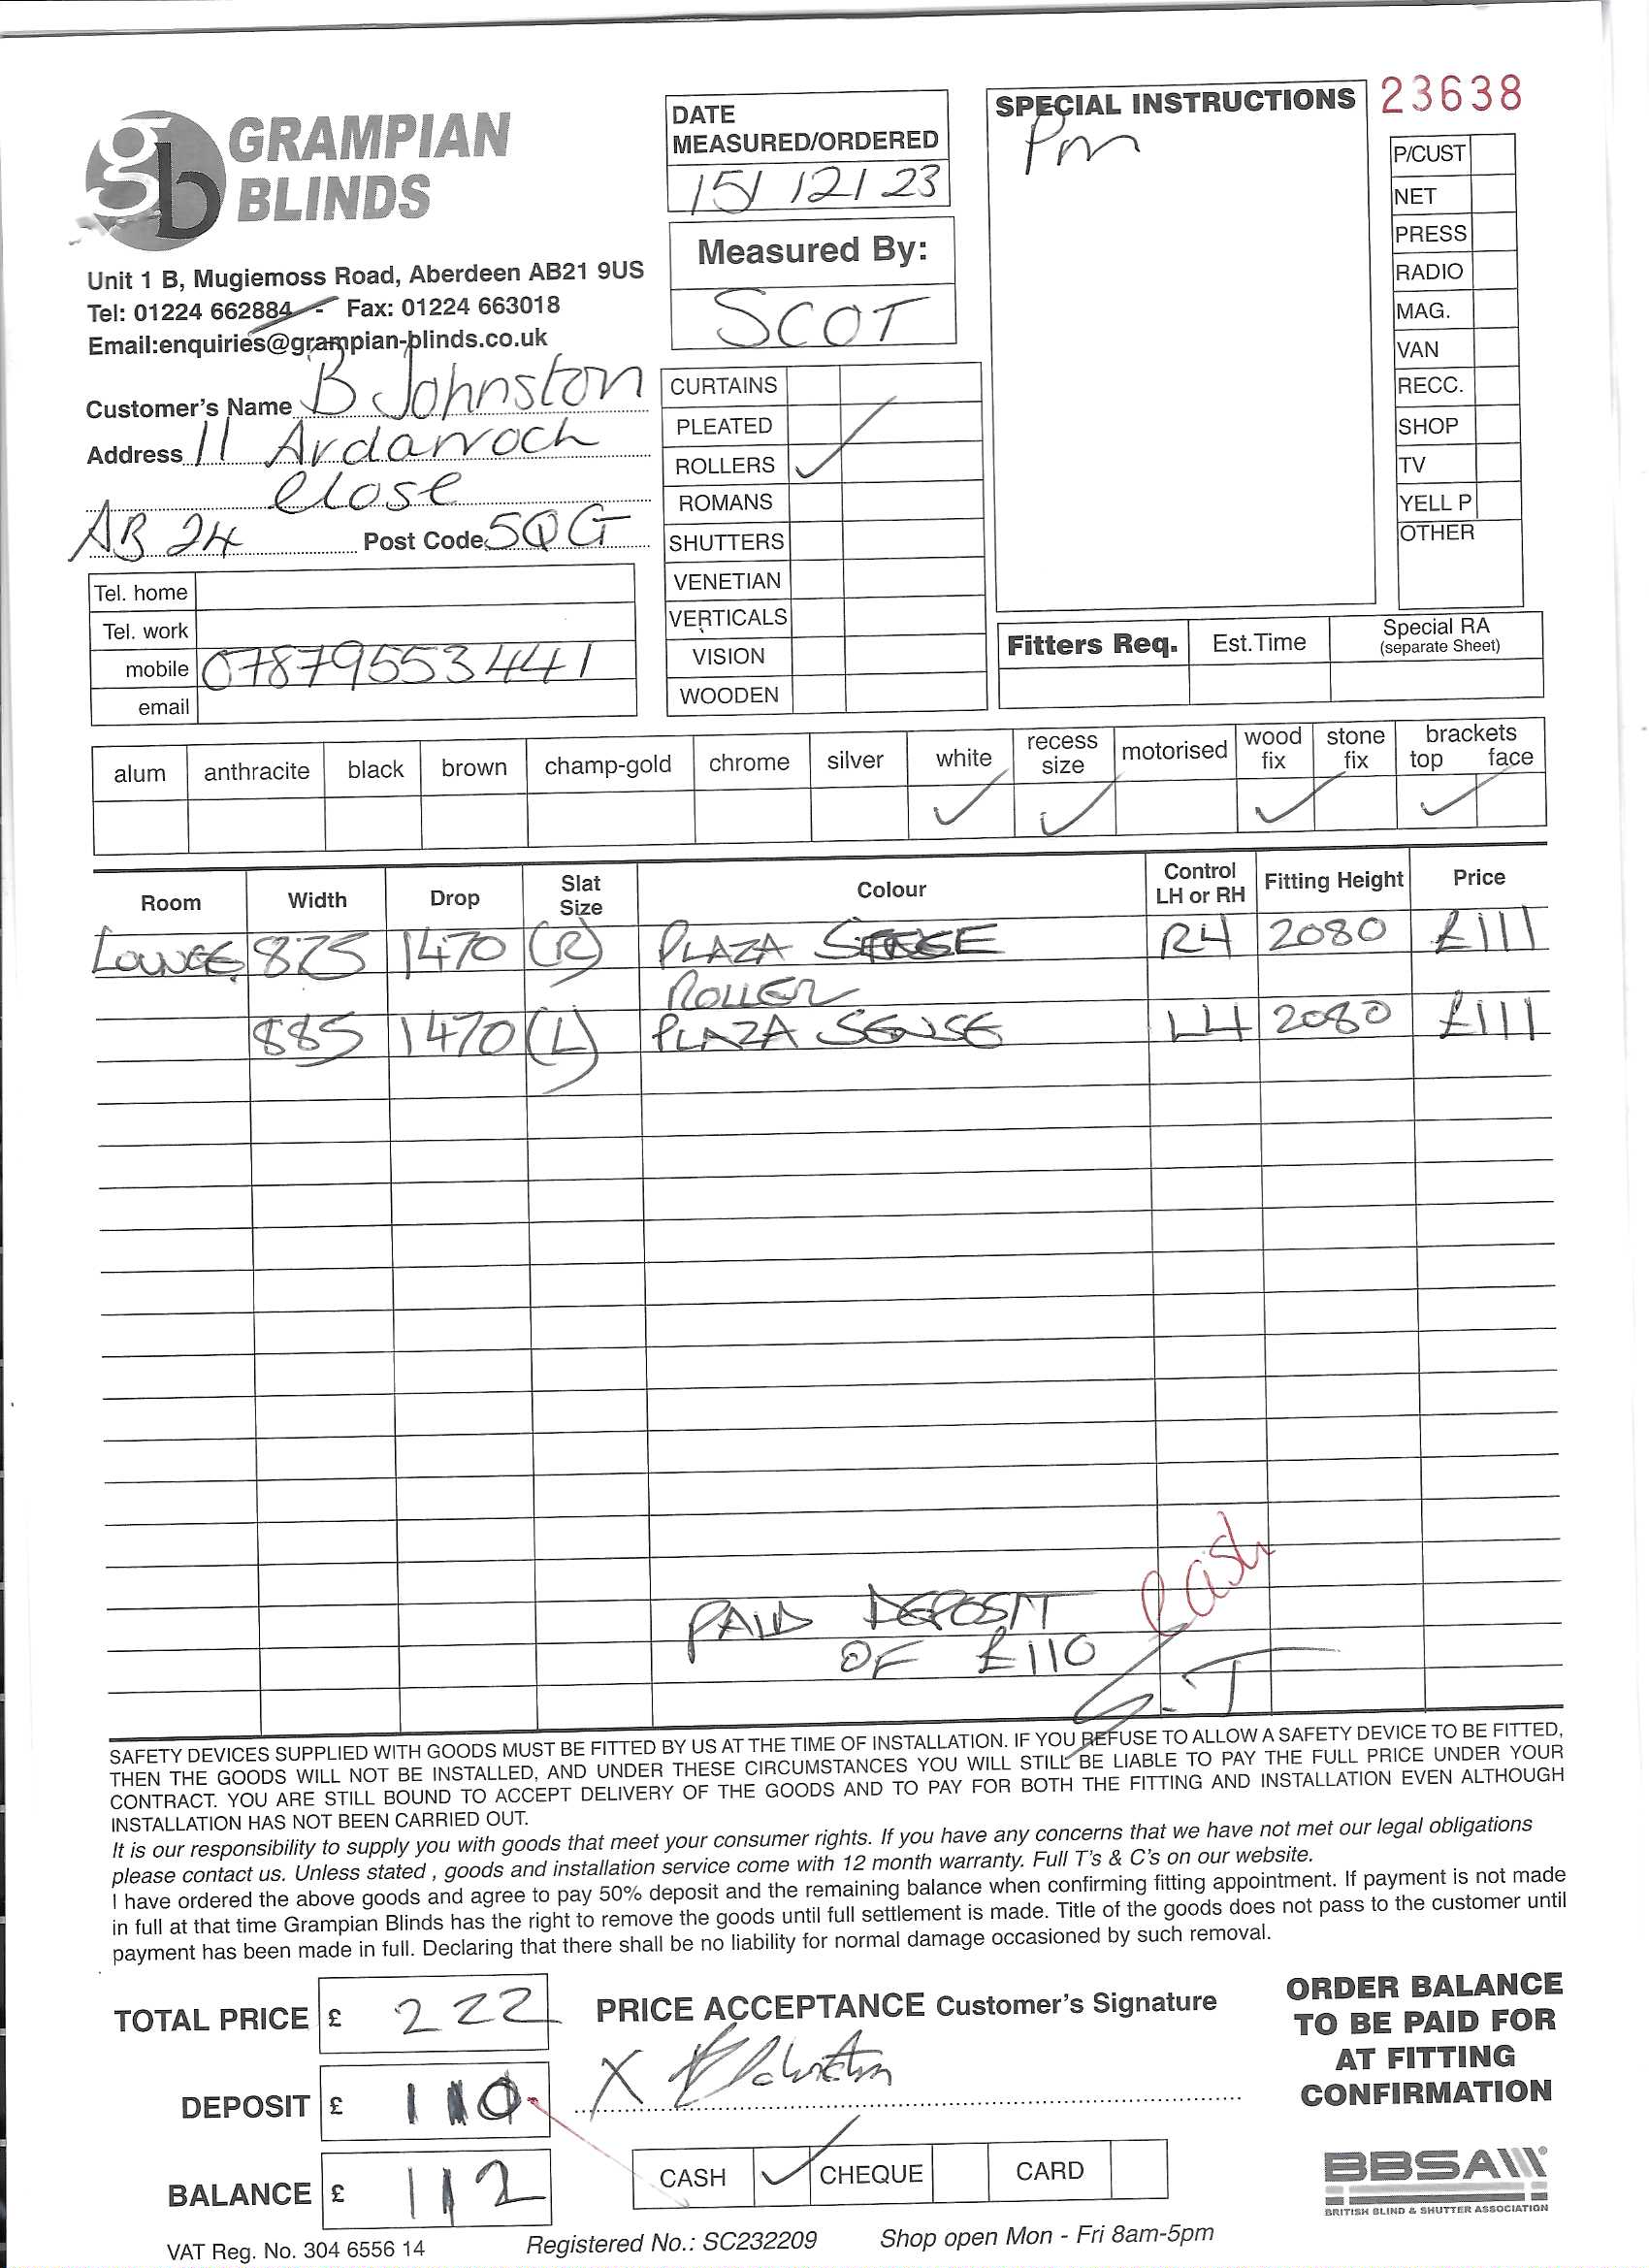 GRAMPIAN
BLINDS
Unit 1 B, Mugiemoss Road, Aberdeen AB21 9US
Tel: 01224 662884 - Fax: 01224 663018
Email:enquiries@grampian-blinds.co.uk
Customer's Name B Johnston
Address 11 Ardarroch
Close
AB 24 Post Code 5QG
Tel. home
Tel. work
mobile 07879553441
email
DATE
MEASURED/ORDERED
15/12/23
Measured By:
SCOT
CURTAINS
PLEATED
ROLLERS ✓
ROMANS
SHUTTERS
VENETIAN
VERTICALS
VISION
WOODEN
SPECIAL INSTRUCTIONS
Pm
23638
P/CUST
NET
PRESS
RADIO
MAG.
VAN
RECC.
SHOP
TV
YELL P
OTHER
Fitters Req. Est.Time Special RA
(separate Sheet)
alum anthracite black brown champ-gold chrome silver white recess size motorised wood fix stone fix brackets top face
✓ ✓ ✓ ✓
Room Width Drop Slat Size Colour Control LH or RH Fitting Height Price
LOUNGE 875 1470 (R) PLAZA SENSE RH 2080 £111
ROLLER
885 1470 (L) PLAZA SENSE LH 2080 £111
PAID DEPOSIT Cash
OF £110 S.T
SAFETY DEVICES SUPPLIED WITH GOODS MUST BE FITTED BY US AT THE TIME OF INSTALLATION. IF YOU REFUSE TO ALLOW A SAFETY DEVICE TO BE FITTED,
THEN THE GOODS WILL NOT BE INSTALLED, AND UNDER THESE CIRCUMSTANCES YOU WILL STILL BE LIABLE TO PAY THE FULL PRICE UNDER YOUR
CONTRACT. YOU ARE STILL BOUND TO ACCEPT DELIVERY OF THE GOODS AND TO PAY FOR BOTH THE FITTING AND INSTALLATION EVEN ALTHOUGH
INSTALLATION HAS NOT BEEN CARRIED OUT.
It is our responsibility to supply you with goods that meet your consumer rights. If you have any concerns that we have not met our legal obligations
please contact us. Unless stated , goods and installation service come with 12 month warranty. Full T's & C's on our website.
I have ordered the above goods and agree to pay 50% deposit and the remaining balance when confirming fitting appointment. If payment is not made
in full at that time Grampian Blinds has the right to remove the goods until full settlement is made. Title of the goods does not pass to the customer until
payment has been made in full. Declaring that there shall be no liability for normal damage occasioned by such removal.
TOTAL PRICE £ 222
DEPOSIT £ 110
BALANCE £ 112
PRICE ACCEPTANCE Customer's Signature
X B Johnston
CASH ✓ CHEQUE CARD
ORDER BALANCE
TO BE PAID FOR
AT FITTING
CONFIRMATION
BBSA
BRITISH BLIND & SHUTTER ASSOCIATION
VAT Reg. No. 304 6556 14 Registered No.: SC232209 Shop open Mon - Fri 8am-5pm